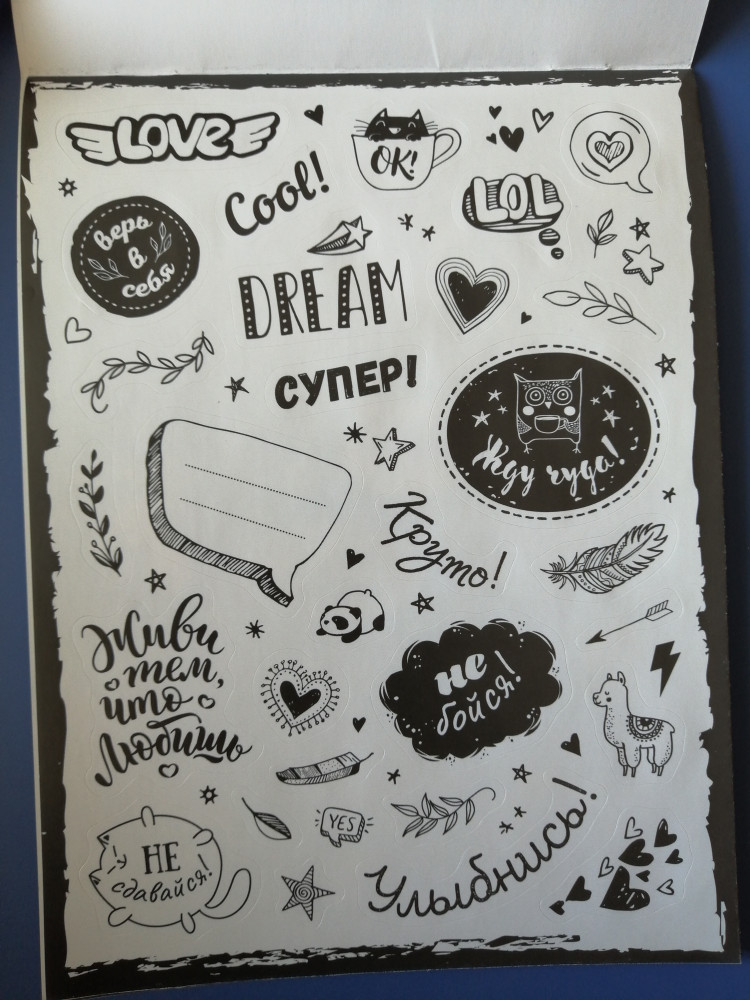 LOVE
Cool!
OK!
LOL
верь
в
себя
DREAM
СУПЕР!
Жду чуда!
Круто!
Живи
тем,
что
Любишь
не
бойся!
YES
НЕ
сдавайся!
Улыбнись!